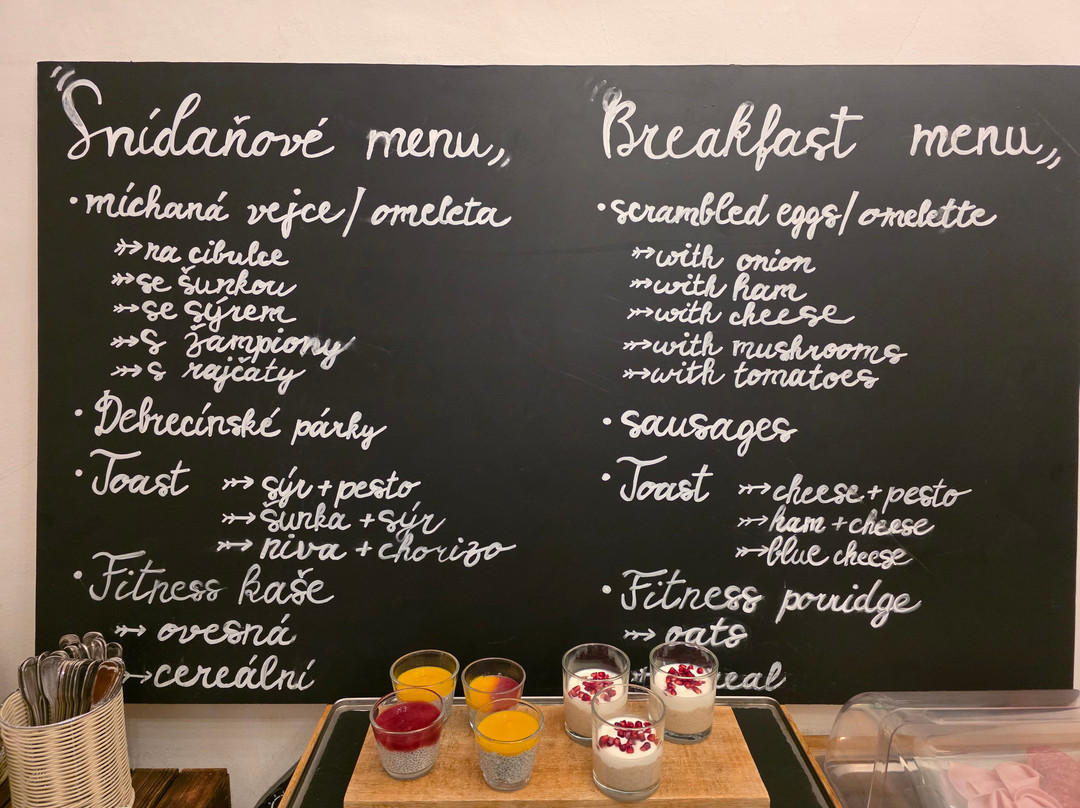 "Snídaňové menu„
• míchaná vejce/omeleta
→ na cibulce
→ se šunkou
→ se sýrem
→ s žampiony
→ s rajčaty
• Debrecínské párky
• Toast → sýr + pesto
→ šunka + sýr
→ niva + chorizo
• Fitness kaše
→ ovesná
→ cereální
"Breakfast menu„
• scrambled eggs/omelette
→ with onion
→ with ham
→ with cheese
→ with mushrooms
→ with tomatoes
• sausages
• Toast → cheese + pesto
→ ham + cheese
→ blue cheese
• Fitness porridge
→ oats